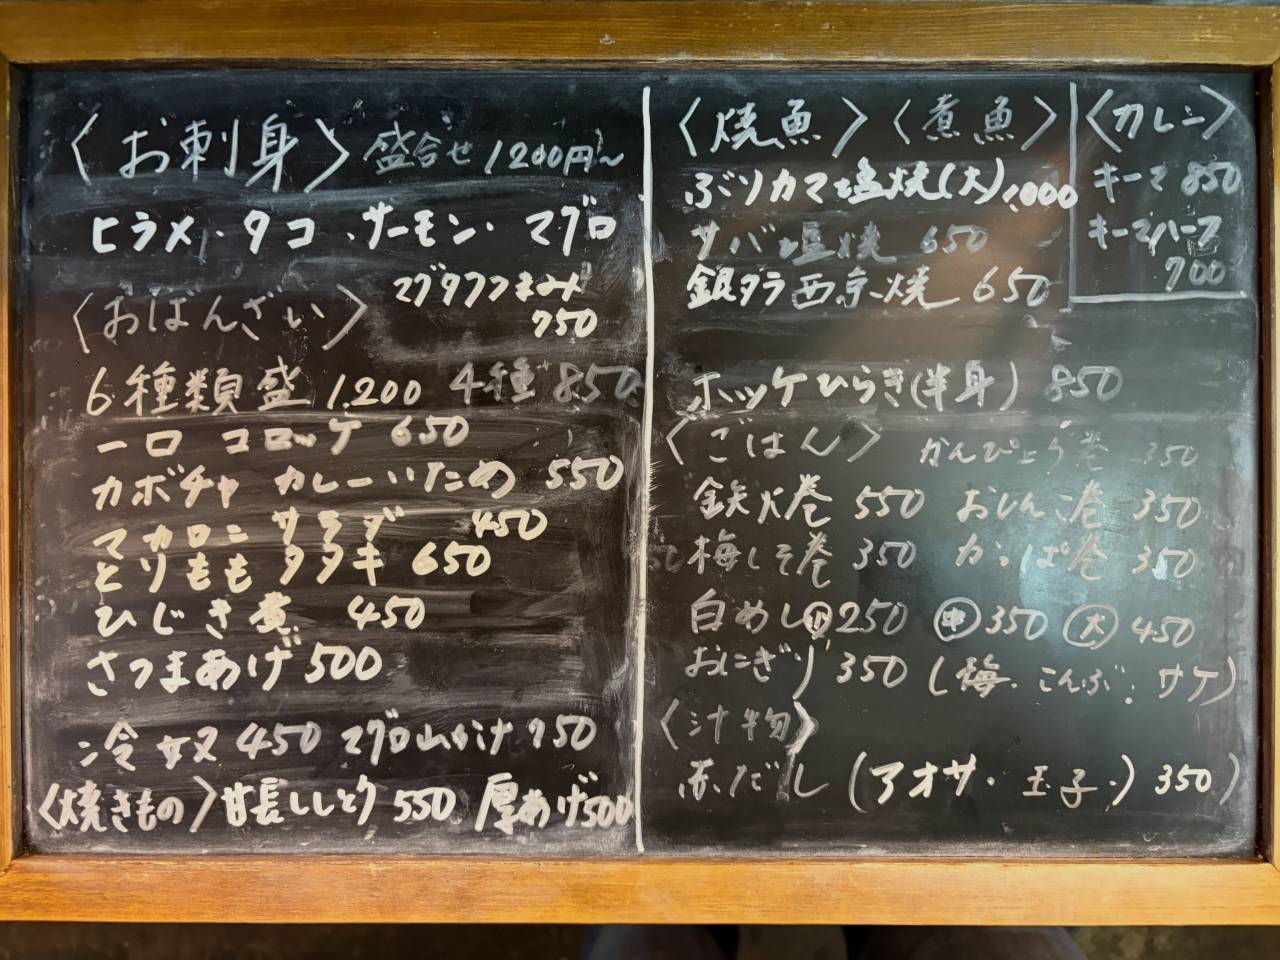 〈お刺身〉盛合せ 1200円〜
ヒラメ・タコ・サーモン・マグロ
マグタフつまみ
750
〈おばんざい〉
6種類盛 1.200 4種 850
一口 コロッケ 650
カボチャ カレーいため 550
マカロニ サラダ 450
とりもも タタキ 650
ひじき煮 450
さつまあげ 500
冷奴 450 マグロ山かけ 750
〈焼きもの〉甘長ししとう 550 厚あげ500
〈焼魚〉〈煮魚〉
ぶりカマ塩焼(大) 1,000
サバ塩焼 650
銀ダラ西京焼 650
ホッケひらき(半身) 850
〈カレー〉
キーマ 850
キーマハーフ
700
〈ごはん〉 かんぴょう巻 350
鉄火巻 550 おしんこ巻 350
梅しそ巻 350 かっぱ巻 350
白めし㊙250 ㊥350 大 450
おにぎり 350 (梅・こんぶ・サケ)
〈汁物〉
赤だし (アオサ・玉子・) 350)